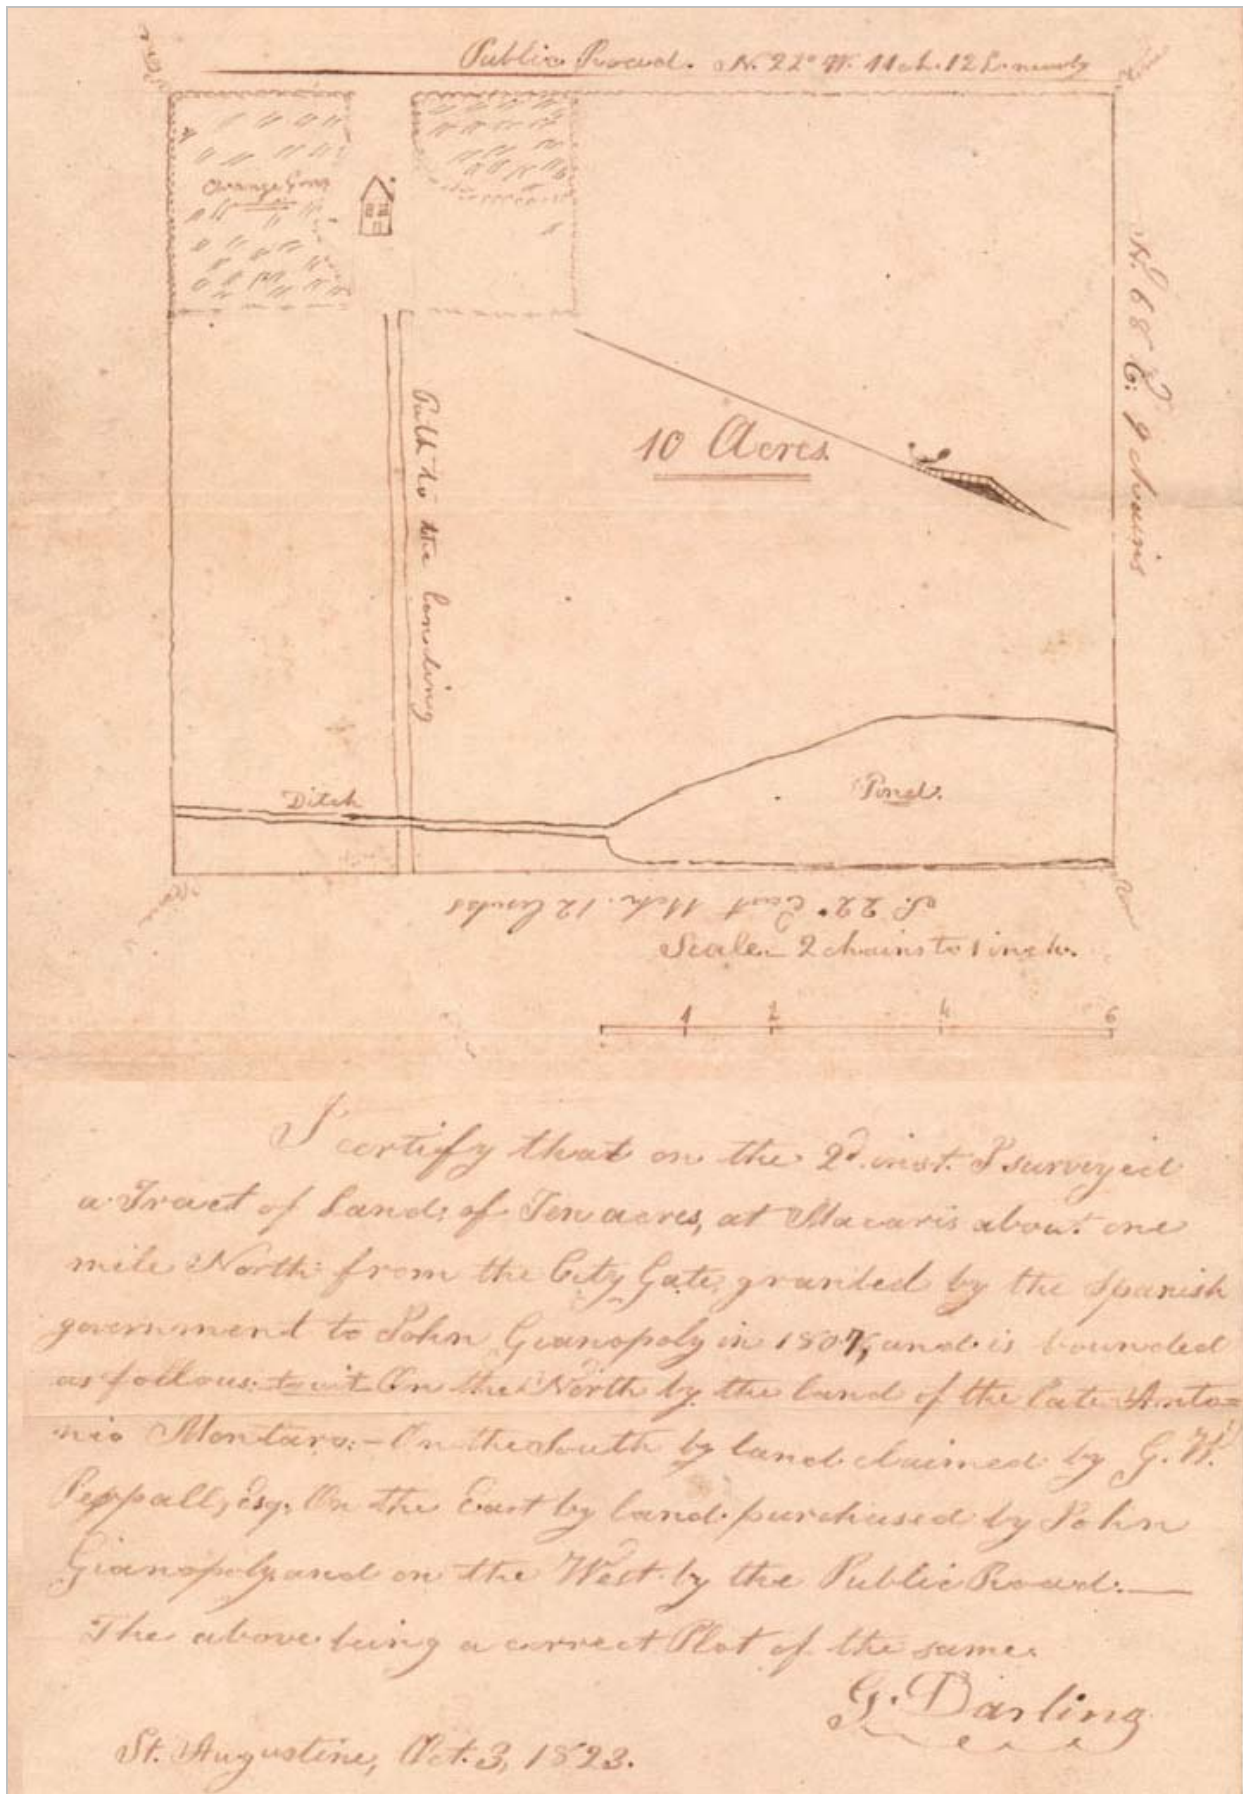 Public Road. N. 22° W. 11 ch. 12 L. nearly
Orange Grove
N. 68 E. 9 chains
10 Acres
Path to the landing
Ditch
Pond.
S. 22° East 11 ch. 12 links
Scale - 2 chains to 1 inch.
1 2 4 6
I certify that on the 2d. inst. I surveyed
a Tract of Land of Ten acres, at Macaris about one
mile North from the City Gate, granted by the Spanish
government to John Gianopoly in 1807, and is bounded
as follows: to wit On the North by the land of the late Anto=
nio Montaro: - On the South by land claimed by G. W.
Peppall, Esq. On the East by land purchased by John
Gianopoly and on the West by the Public Road: —
The above being a correct Plot of the same.
G. Darling
St. Augustine, Oct. 3, 1823.